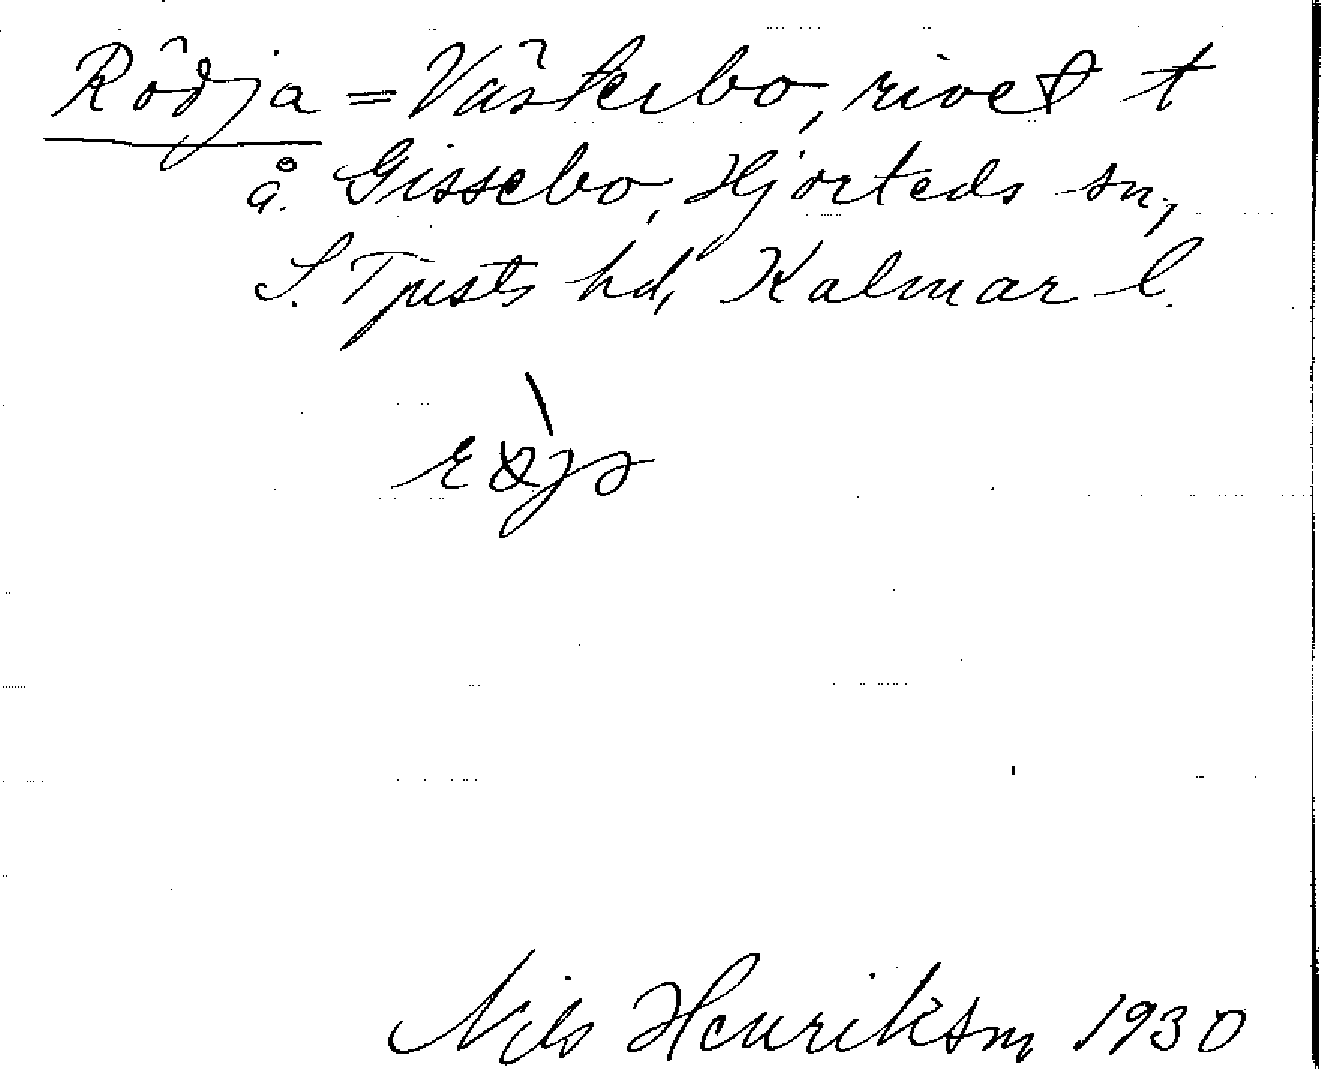 Rödja = Västerbo, rivet t
å. Gissebo, Hjorteds sn,
S. Tjusts hd, Kalmar l.
Nils Henriksm 1930